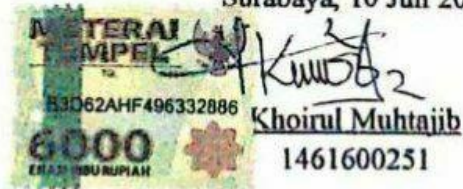 Surabaya, 10 Juli 20
METERAI
TEMPEL
B3D62AHF496332886
6000
ENAM RIBU RUPIAH
Khoirul Muhtajib
1461600251